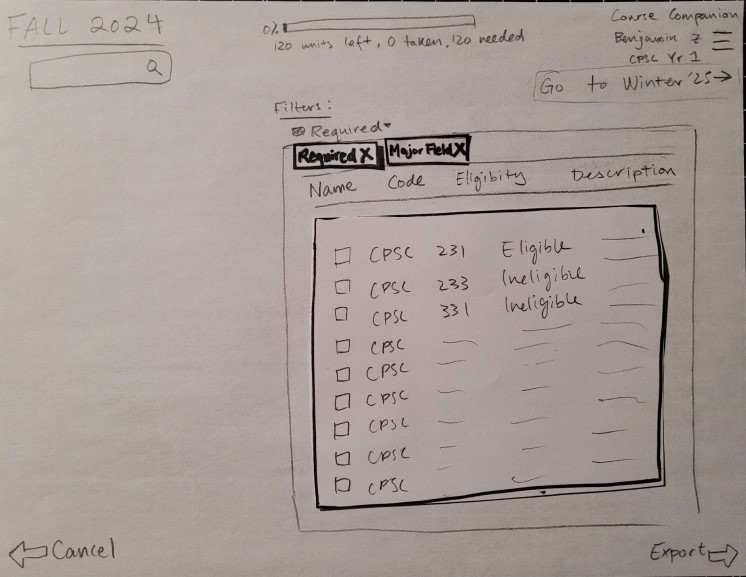 FALL 2024
0%
120 units left, 0 taken, 120 needed
Course Companion
Benjamin Z
CPSC Yr 1
Go to Winter '25→
Filters:
Required
Required X Major Field X
Name Code Eligibity Description
CPSC 231 Eligible
CPSC 233 Ineligible
CPSC 331 Ineligible
CPSC
CPSC
CPSC
CPSC
CPSC
CPSC
Cancel
Export